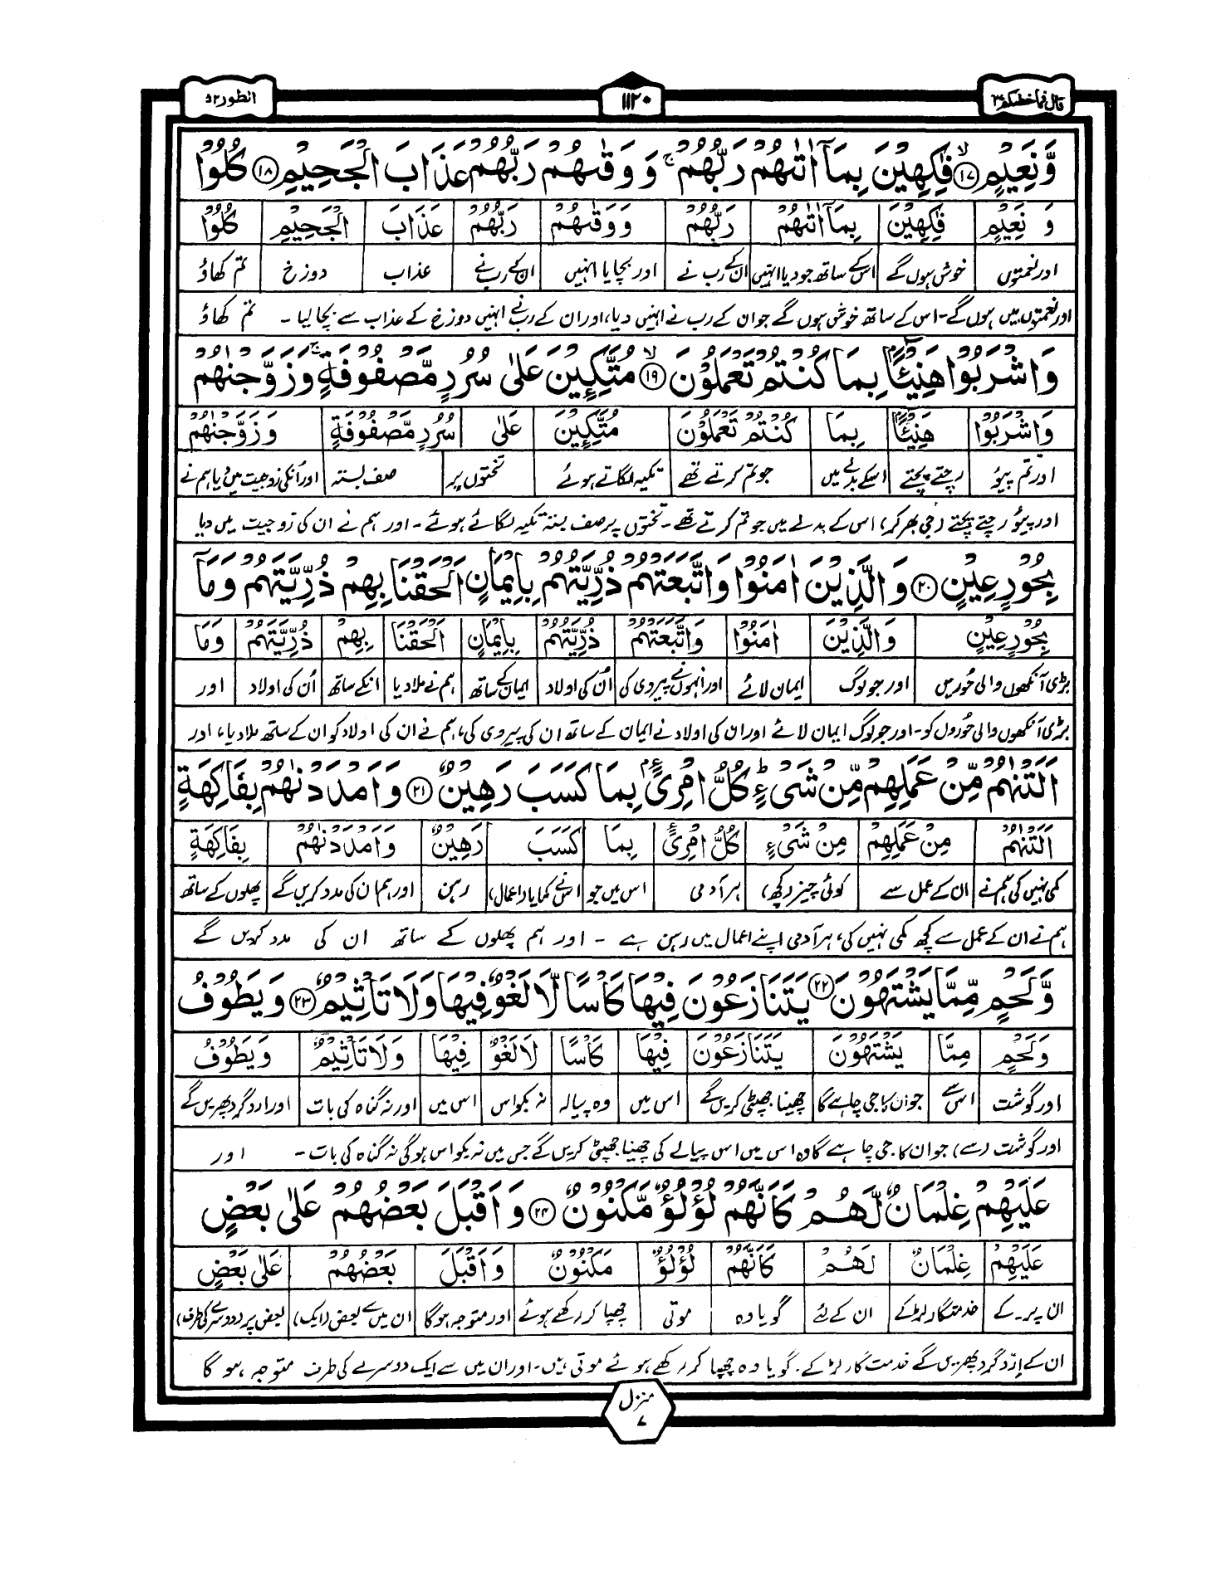 قال فما خطبکم ۲۷
۱۱۲۰
الطور ۵۲
وَّنَعِيْمٍ ۙ﴿۱۷﴾ فٰكِهِيْنَ بِمَاۤ اٰتٰىهُمْ رَبُّهُمْ ۚ وَوَقٰىهُمْ رَبُّهُمْ عَذَابَ الْجَحِيْمِ ﴿۱۸﴾ كُلُوْا
وَ نَعِيْمٍ فٰكِهِيْنَ بِمَاۤ اٰتٰىهُمْ رَبُّهُمْ وَوَقٰىهُمْ رَبُّهُمْ عَذَابَ الْجَحِيْمِ كُلُوْا
اور نعمتوں خوش ہوں گے اس کے ساتھ جو دیا انہیں ان کے رب نے اور بچایا انہیں ان کے رب نے عذاب دوزخ تم کھاؤ
اور نعمتوں میں ہوں گے۔ اس کے ساتھ خوش ہوں گے جو ان کے رب نے انہیں دیا، اور ان کے رب نے انہیں دوزخ کے عذاب سے بچا لیا ۔ تم کھاؤ
وَاشْرَبُوْا هَنِيْٓئًۢا بِمَا كُنْتُمْ تَعْمَلُوْنَ ۙ﴿۱۹﴾ مُتَّكِـِٕيْنَ عَلٰى سُرُرٍ مَّصْفُوْفَةٍ ۚ وَزَوَّجْنٰهُمْ
وَاشْرَبُوْا هَنِيْٓئًۢا بِمَا كُنْتُمْ تَعْمَلُوْنَ مُتَّكِـِٕيْنَ عَلٰى سُرُرٍ مَّصْفُوْفَةٍ وَزَوَّجْنٰهُمْ
اور تم پیؤ رچتے پچتے اسکے بدلے میں جو تم کرتے تھے تکیہ لگاتے ہوئے تختوں پر صف بستہ اور انکی زوجیت میں دیا ہم نے
اور پیؤ رچتے پچتے (جی بھر کر) اس کے بدلے میں جو تم کرتے تھے ۔ تختوں پر صف بستہ تکیہ لگائے ہوئے ۔ اور ہم نے ان کی زوجیت میں دیا
بِحُوْرٍ عِيْنٍ ﴿۲۰﴾ وَالَّذِيْنَ اٰمَنُوْا وَاتَّبَعَتْهُمْ ذُرِّيَّتُهُمْ بِاِيْمَانٍ اَلْحَقْنَا بِهِمْ ذُرِّيَّتَهُمْ وَمَاۤ
بِحُوْرٍ عِيْنٍ وَالَّذِيْنَ اٰمَنُوْا وَاتَّبَعَتْهُمْ ذُرِّيَّتُهُمْ بِاِيْمَانٍ اَلْحَقْنَا بِهِمْ ذُرِّيَّتَهُمْ وَمَاۤ
بڑی آنکھوں والی حُوریں اور جو لوگ ایمان لائے اور انہوں نے پیروی کی اُن کی اولاد ایمان کے ساتھ ہم نے ملا دیا انکے ساتھ اُن کی اولاد اور
بڑی آنکھوں والی حُوروں کو۔ اور جو لوگ ایمان لائے اور ان کی اولاد نے ایمان کے ساتھ ان کی پیروی کی، ہم نے ان کی اولاد کو ان کے ساتھ ملا دیا، اور
اَلَتْنٰهُمْ مِّنْ عَمَلِهِمْ مِّنْ شَيْءٍ ؕ كُلُّ امْرِئٍۢ بِمَا كَسَبَ رَهِيْنٌ ﴿۲۱﴾ وَاَمْدَدْنٰهُمْ بِفَاكِهَةٍ
اَلَتْنٰهُمْ مِنْ عَمَلِهِمْ مِنْ شَيْءٍ كُلُّ امْرِئٍۢ بِمَا كَسَبَ رَهِيْنٌ وَاَمْدَدْنٰهُمْ بِفَاكِهَةٍ
کمی نہیں کی ہم نے ان کے عمل سے کوئی چیز (کچھ) ہر آدمی اس میں جو اسنے کمایا (اعمال) رہن اور ہم ان کی مدد کریں گے پھلوں کے ساتھ
ہم نے ان کے عمل سے کچھ کمی نہیں کی، ہر آدمی اپنے اعمال میں رہن ہے ۔ اور ہم پھلوں کے ساتھ ان کی مدد کریں گے
وَّلَحْمٍ مِّمَّا يَشْتَهُوْنَ ﴿۲۲﴾ يَتَنَازَعُوْنَ فِيْهَا كَاْسًا لَّا لَغْوٌ فِيْهَا وَلَا تَاْثِيْمٌ ﴿۲۳﴾ وَيَطُوْفُ
وَلَحْمٍ مِمَّا يَشْتَهُوْنَ يَتَنَازَعُوْنَ فِيْهَا كَاْسًا لَا لَغْوٌ فِيْهَا وَلَا تَاْثِيْمٌ وَيَطُوْفُ
اور گوشت اس سے جو ان کا جی چاہے گا چھینا جھپٹی کریں گے اس میں وہ پیالہ نہ بکواس اس میں اور نہ گناہ کی بات اور ارد گرد پھریں گے
اور گوشت (سے) جو ان کا جی چاہے گا وہ اس میں اس پیالے کی چھینا جھپٹی کریں گے جس میں نہ بکواس ہو گی نہ گناہ کی بات ۔ اور
عَلَيْهِمْ غِلْمَانٌ لَّهُمْ كَاَنَّهُمْ لُؤْلُؤٌ مَّكْنُوْنٌ ﴿۲۴﴾ وَاَقْبَلَ بَعْضُهُمْ عَلٰى بَعْضٍ
عَلَيْهِمْ غِلْمَانٌ لَهُمْ كَاَنَّهُمْ لُؤْلُؤٌ مَكْنُوْنٌ وَاَقْبَلَ بَعْضُهُمْ عَلٰى بَعْضٍ
ان پر۔ کے خدمتگار لڑکے ان کے لئے گویا وہ موتی چھپا کر رکھے ہوئے اور متوجہ ہوگا ان میں سے بعض (ایک) بعض پر (دوسرے کی طرف)
ان کے اِرد گرد پھریں گے خدمت گار لڑکے، گویا وہ چھپا کر رکھے ہوئے موتی ہیں۔ اور ان میں سے ایک دوسرے کی طرف متوجہ ہو گا
منزل ۷